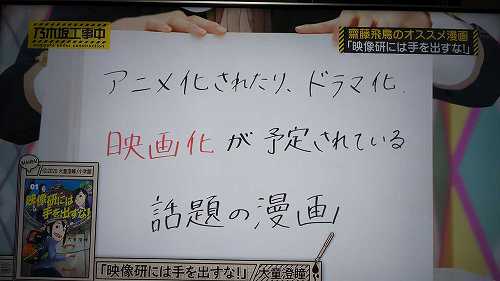 乃木坂工事中
齋藤飛鳥のオススメ漫画
「映像研には手を出すな!」
アニメ化されたり、ドラマ化、
映画化が予定されている
話題の漫画
©2020 大童澄瞳/小学館
01
映像研には
手を出すな!
「映像研には手を出すな!」
大童澄瞳